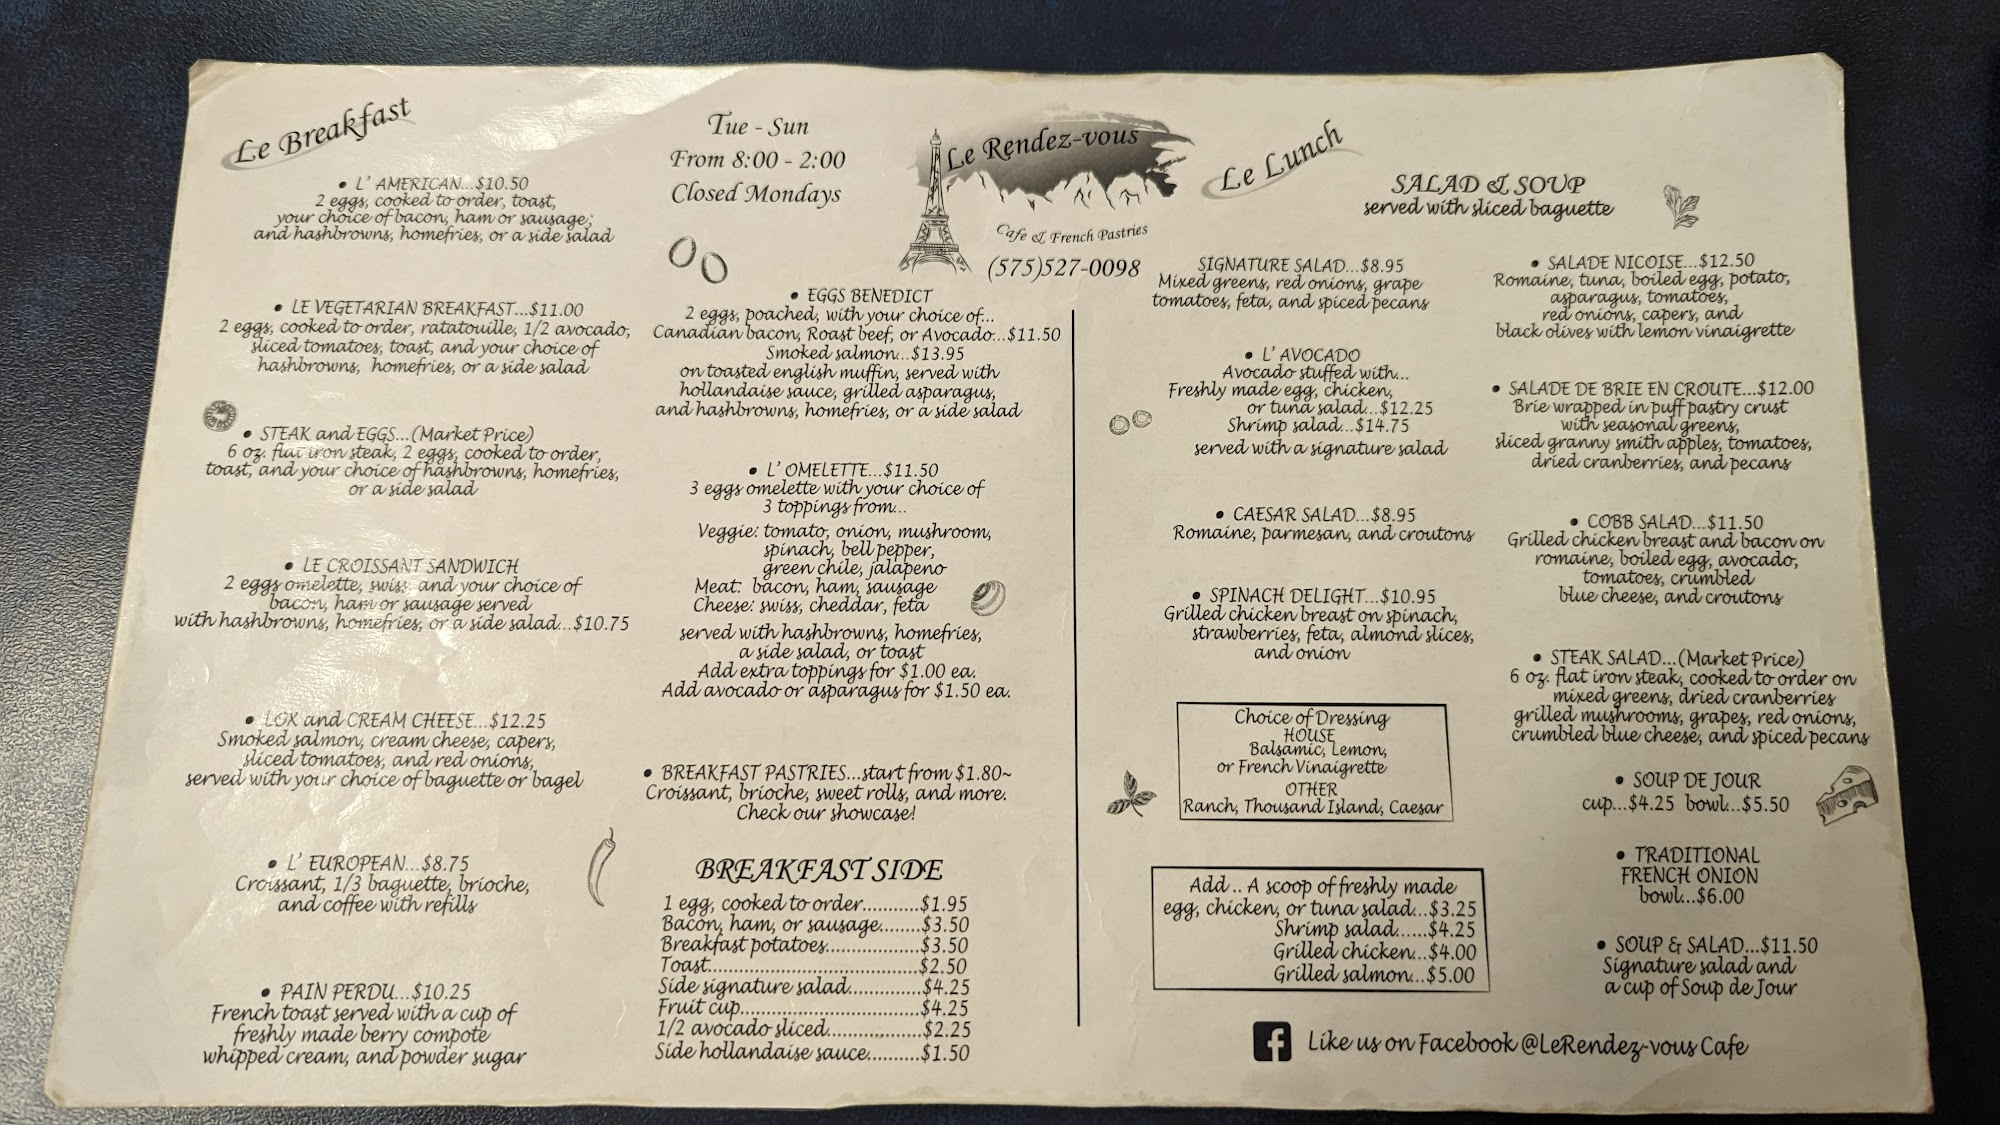 Le Breakfast
• L' AMERICAN...$10.50
2 eggs, cooked to order, toast,
your choice of bacon, ham or sausage;
and hashbrowns, homefries, or a side salad
• LE VEGETARIAN BREAKFAST...$11.00
2 eggs, cooked to order, ratatouille, 1/2 avocado,
sliced tomatoes, toast, and your choice of
hashbrowns, homefries, or a side salad
• STEAK and EGGS...(Market Price)
6 oz. flat iron steak, 2 eggs, cooked to order,
toast, and your choice of hashbrowns, homefries,
or a side salad
• LE CROISSANT SANDWICH
2 eggs omelette, swiss, and your choice of
bacon, ham or sausage served
with hashbrowns, homefries, or a side salad...$10.75
• LOX and CREAM CHEESE...$12.25
Smoked salmon, cream cheese, capers,
sliced tomatoes, and red onions,
served with your choice of baguette or bagel
• L' EUROPEAN...$8.75
Croissant, 1/3 baguette, brioche,
and coffee with refills
• PAIN PERDU...$10.25
French toast served with a cup of
freshly made berry compote
whipped cream, and powder sugar
Tue - Sun
From 8:00 - 2:00
Closed Mondays
Le Rendez-vous
Cafe & French Pastries
(575)527-0098
• EGGS BENEDICT
2 eggs, poached, with your choice of...
Canadian bacon, Roast beef, or Avocado...$11.50
Smoked salmon...$13.95
on toasted english muffin, served with
hollandaise sauce, grilled asparagus,
and hashbrowns, homefries, or a side salad
• L' OMELETTE...$11.50
3 eggs omelette with your choice of
3 toppings from...
Veggie: tomato, onion, mushroom,
spinach, bell pepper,
green chile, jalapeno
Meat: bacon, ham, sausage
Cheese: swiss, cheddar, feta
served with hashbrowns, homefries,
a side salad, or toast
Add extra toppings for $1.00 ea.
Add avocado or asparagus for $1.50 ea.
• BREAKFAST PASTRIES...start from $1.80~
Croissant, brioche, sweet rolls, and more.
Check our showcase!
BREAKFAST SIDE
1 egg, cooked to order...........$1.95
Bacon, ham, or sausage........$3.50
Breakfast potatoes..................$3.50
Toast.........................................$2.50
Side signature salad..............$4.25
Fruit cup...................................$4.25
1/2 avocado sliced..................$2.25
Side hollandaise sauce..........$1.50
Le Lunch
SALAD & SOUP
served with sliced baguette
SIGNATURE SALAD...$8.95
Mixed greens, red onions, grape
tomatoes, feta, and spiced pecans
• L' AVOCADO
Avocado stuffed with...
Freshly made egg, chicken,
or tuna salad...$12.25
Shrimp salad...$14.75
served with a signature salad
• CAESAR SALAD...$8.95
Romaine, parmesan, and croutons
• SPINACH DELIGHT...$10.95
Grilled chicken breast on spinach,
strawberries, feta, almond slices,
and onion
Choice of Dressing
HOUSE
Balsamic, Lemon,
or French Vinaigrette
OTHER
Ranch, Thousand Island, Caesar
Add .. A scoop of freshly made
egg, chicken, or tuna salad...$3.25
Shrimp salad......$4.25
Grilled chicken...$4.00
Grilled salmon...$5.00
• SALADE NICOISE...$12.50
Romaine, tuna, boiled egg, potato,
asparagus, tomatoes,
red onions, capers, and
black olives with lemon vinaigrette
• SALADE DE BRIE EN CROUTE...$12.00
Brie wrapped in puff pastry crust
with seasonal greens,
sliced granny smith apples, tomatoes,
dried cranberries, and pecans
• COBB SALAD...$11.50
Grilled chicken breast and bacon on
romaine, boiled egg, avocado,
tomatoes, crumbled
blue cheese, and croutons
• STEAK SALAD...(Market Price)
6 oz. flat iron steak, cooked to order on
mixed greens, dried cranberries
grilled mushrooms, grapes, red onions,
crumbled blue cheese, and spiced pecans
• SOUP DE JOUR
cup...$4.25 bowl...$5.50
• TRADITIONAL
FRENCH ONION
bowl...$6.00
• SOUP & SALAD...$11.50
Signature salad and
a cup of Soup de Jour
Like us on Facebook @LeRendez-vous Cafe